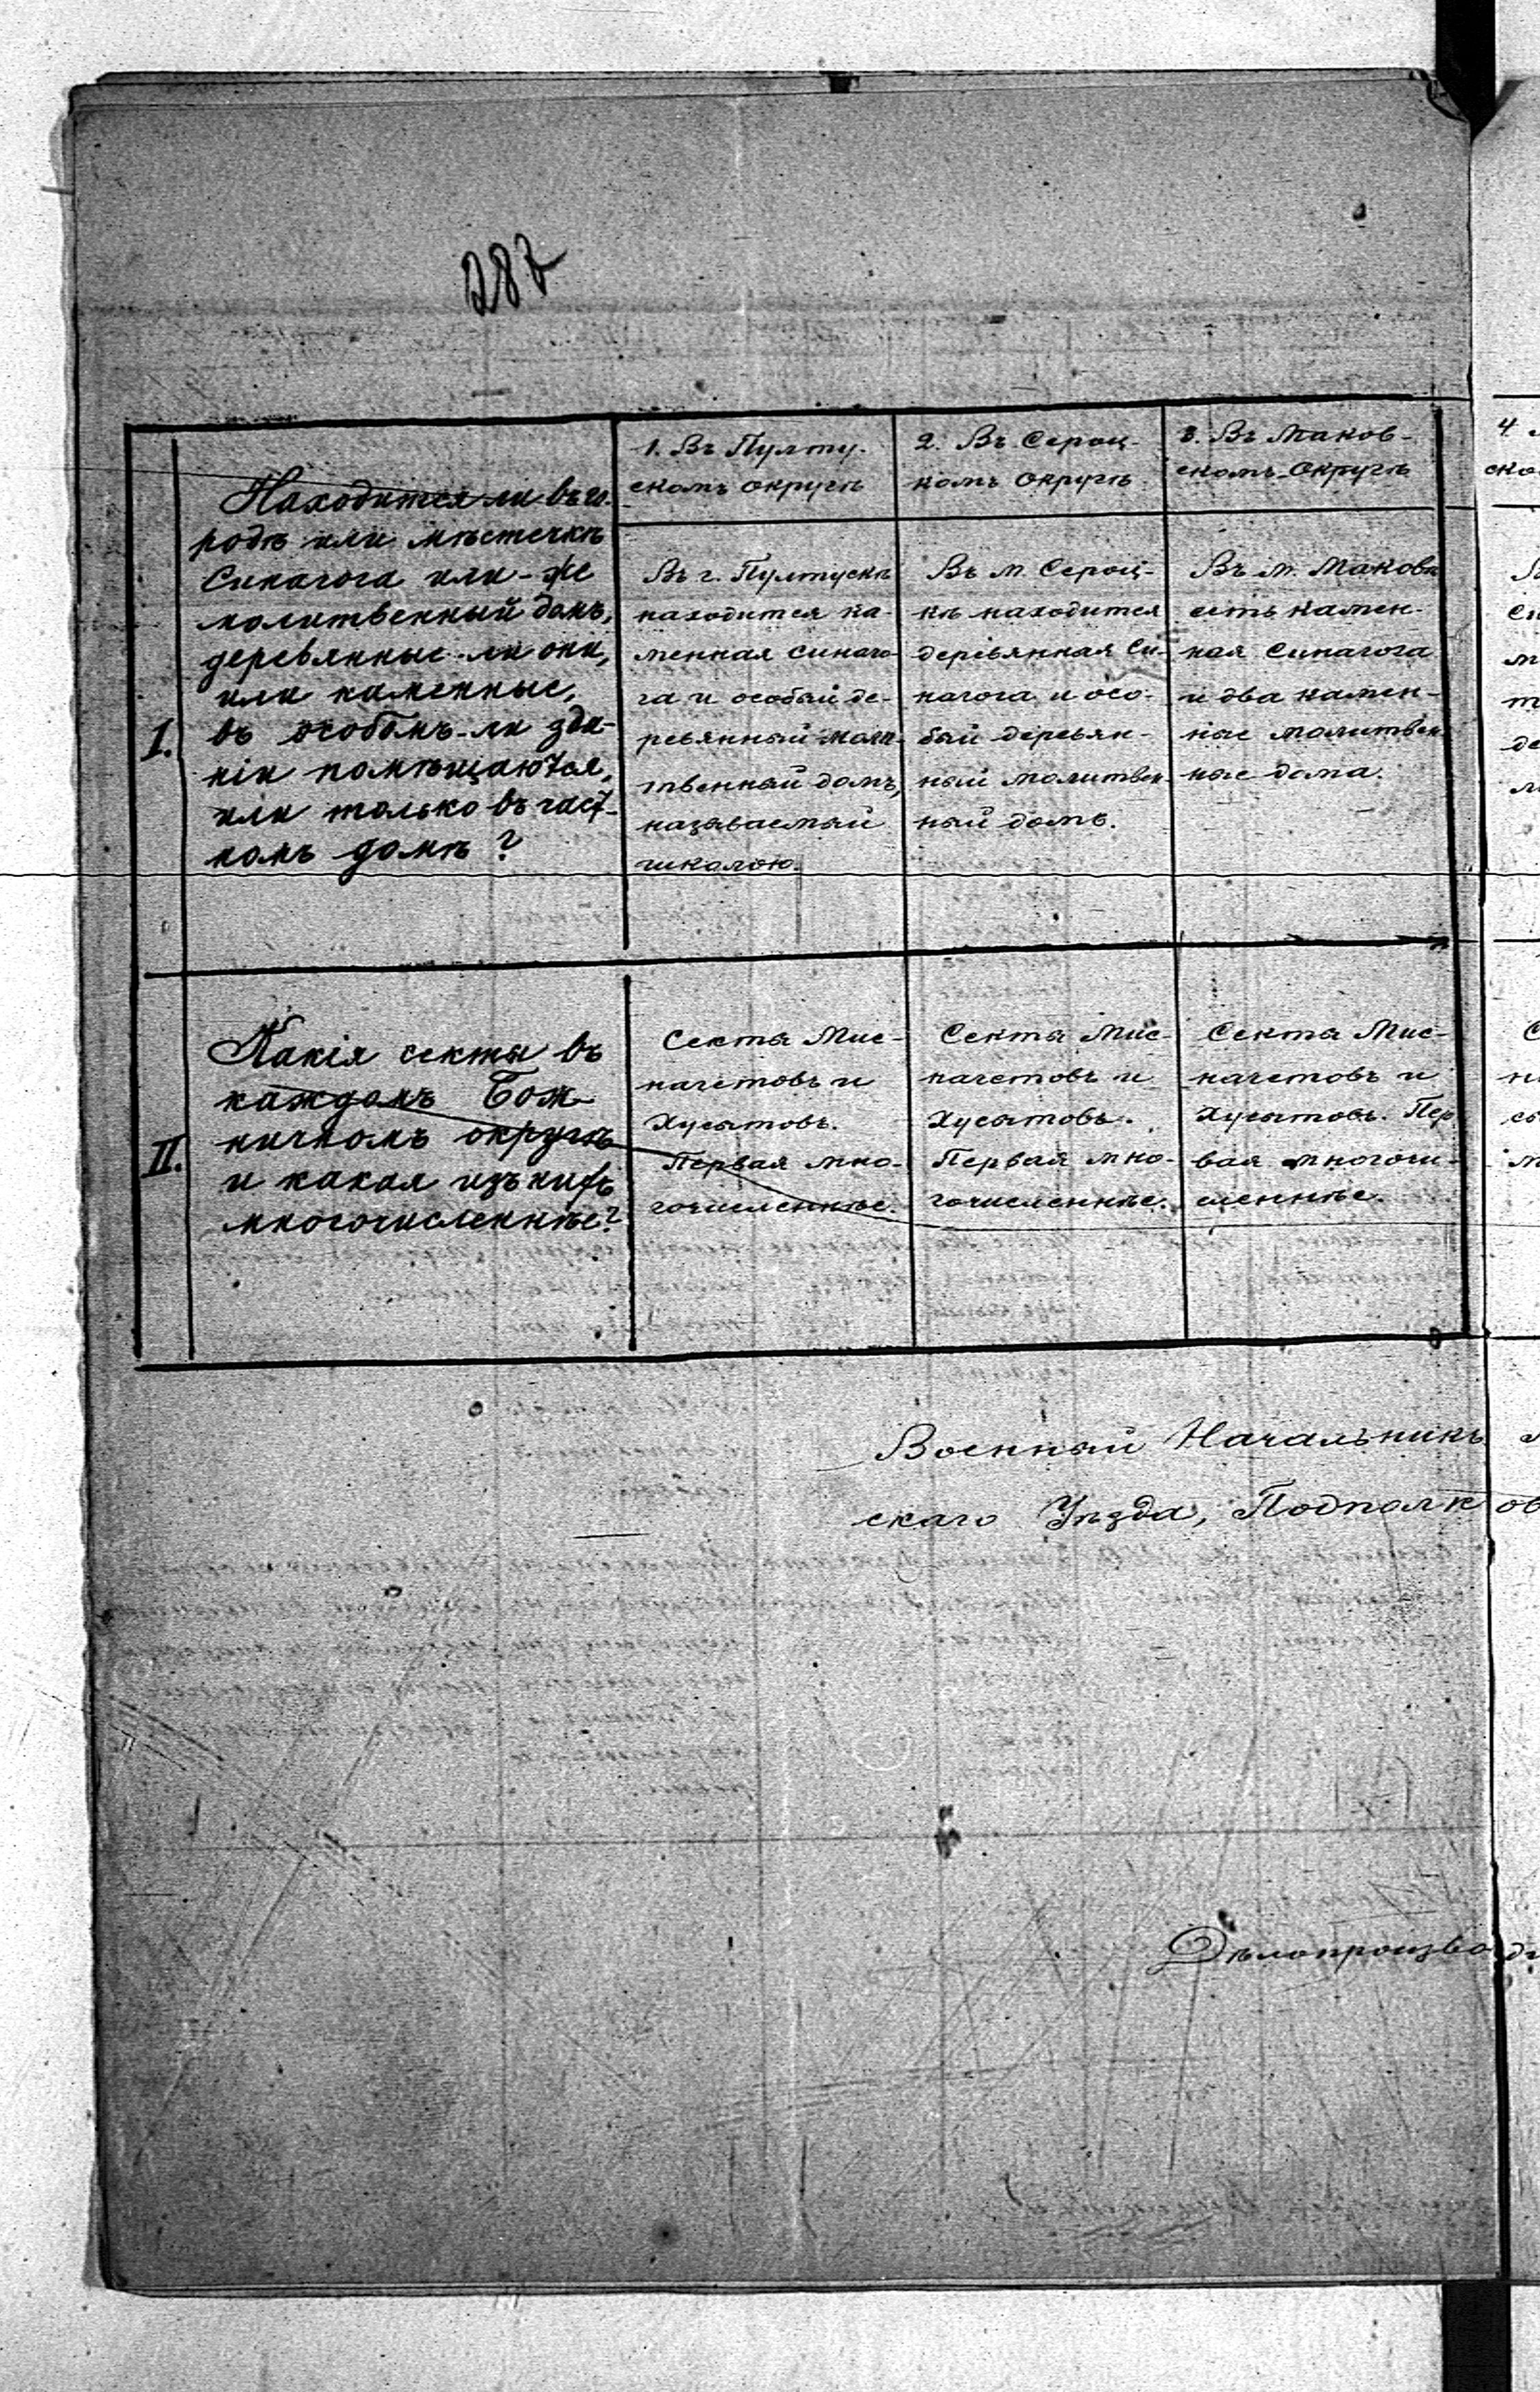 287
1. Въ Пулту-
скомъ округѣ
2. Въ Сероц-
комъ округѣ
3. Въ Маков-
скомъ округѣ
4
ско
I.
Находится ли въ го-
родѣ или мѣстечкѣ
Синагога или-же
молитвенный домъ,
деревянные-ли они,
или каменные,
въ особомъ-ли зда-
ніи помѣщаются,
или только въ част-
номъ домѣ?
Въ г. Пултускѣ
находится ка-
менная синаго-
га и особый де-
ревянный моли-
твенный домъ,
называемый
школою.
Въ м. Сероц-
кѣ находится
деревянная Си-
нагога и осо-
бый деревян-
ный молитвен-
ный домъ.
Въ м. Маковѣ
есть камен-
ная Синагога
и два камен-
ные молитвен-
ные дома.
II.
Какія секты въ
каждомъ Бож-
ничномъ округѣ
и какая изъ нихъ
многочисленнѣе?
Секта Мис-
нагетовъ и
Хусытовъ.
Первая мно-
гочисленнѣе.
Секта Мис-
нагетовъ и
Хусытовъ.
Первая мно-
гочисленнѣе.
Секта Мис-
нагетовъ и
Хусытовъ. Пер-
вая многочи-
сленнѣе.
Военный Начальникъ
скаго Уѣзда, Подполков
Дѣлопроизводи